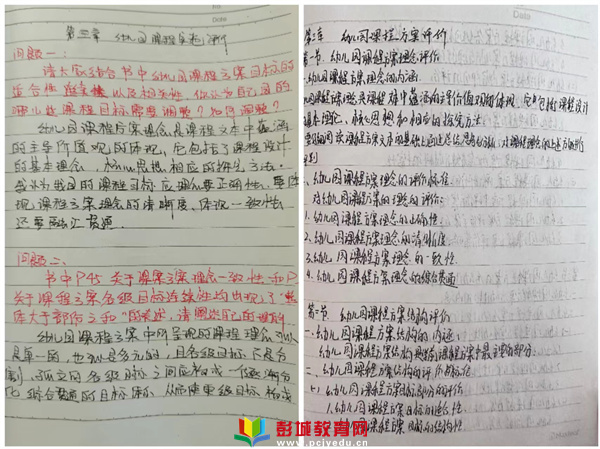 第三章 幼儿园课程实施评价
问题一:
请大家结合书中幼儿园课程方案目标的
适合性 以及相关性,你认为自己园的
哪些课程目标需要调整?如何调整?
幼儿园课程方案理念是课程文本中蕴涵
的主导价值观的体现,它包括了课程设计
的基本理念、核心思想相应的研究方法。
我认为我园的课程目标应理念要正确性,要体
现课程方案理念的清晰度,体现一致性
还要融汇贯通
问题二、
书中P45 关于课程方案理念一致性和P
关于课程方案各级目标连续性均出现了“整
体大于部分之和”的表述,请阐述自己的理解
幼儿园课程方案中所呈现的课程理念可以
是单一的,也可以是多元的,且各级目标不是分
割、孤立的各级目标之间应构成一个逐渐分
化综合贯通的目标体系,从而使单级目标构成
Date
第二章 幼儿园课程方案评价
第一节、幼儿园课程方案理念评价
幼儿园课程方案理念的内涵:
课程方案理念是课程文本中蕴涵的主导价值观的体现,它包括了课程设计
基本理念、核心思想和相应的研究方法
一、幼儿园课程方案理念的评价标准
对幼儿园课程方案的理念的评价:
1.幼儿园课程方案理念的正确性
2、幼儿园课程方案理念的清晰度
3.幼儿园课程方案理念的一致性
4.幼儿园课程方案理念的综合贯通
第二节 幼儿园课程方案结构评价
一、幼儿园课程方案结构的内涵:
幼儿园课程方案结构是课程方案中最主要的部分
二、幼儿园课程方案结构的评价标准
(一)幼儿园课程方案目标部分的评价
1.幼儿园课程方案目标的适合性
幼儿园课程方案目标的结构性
Date
彭城教育网
www.pcjyedu.cn